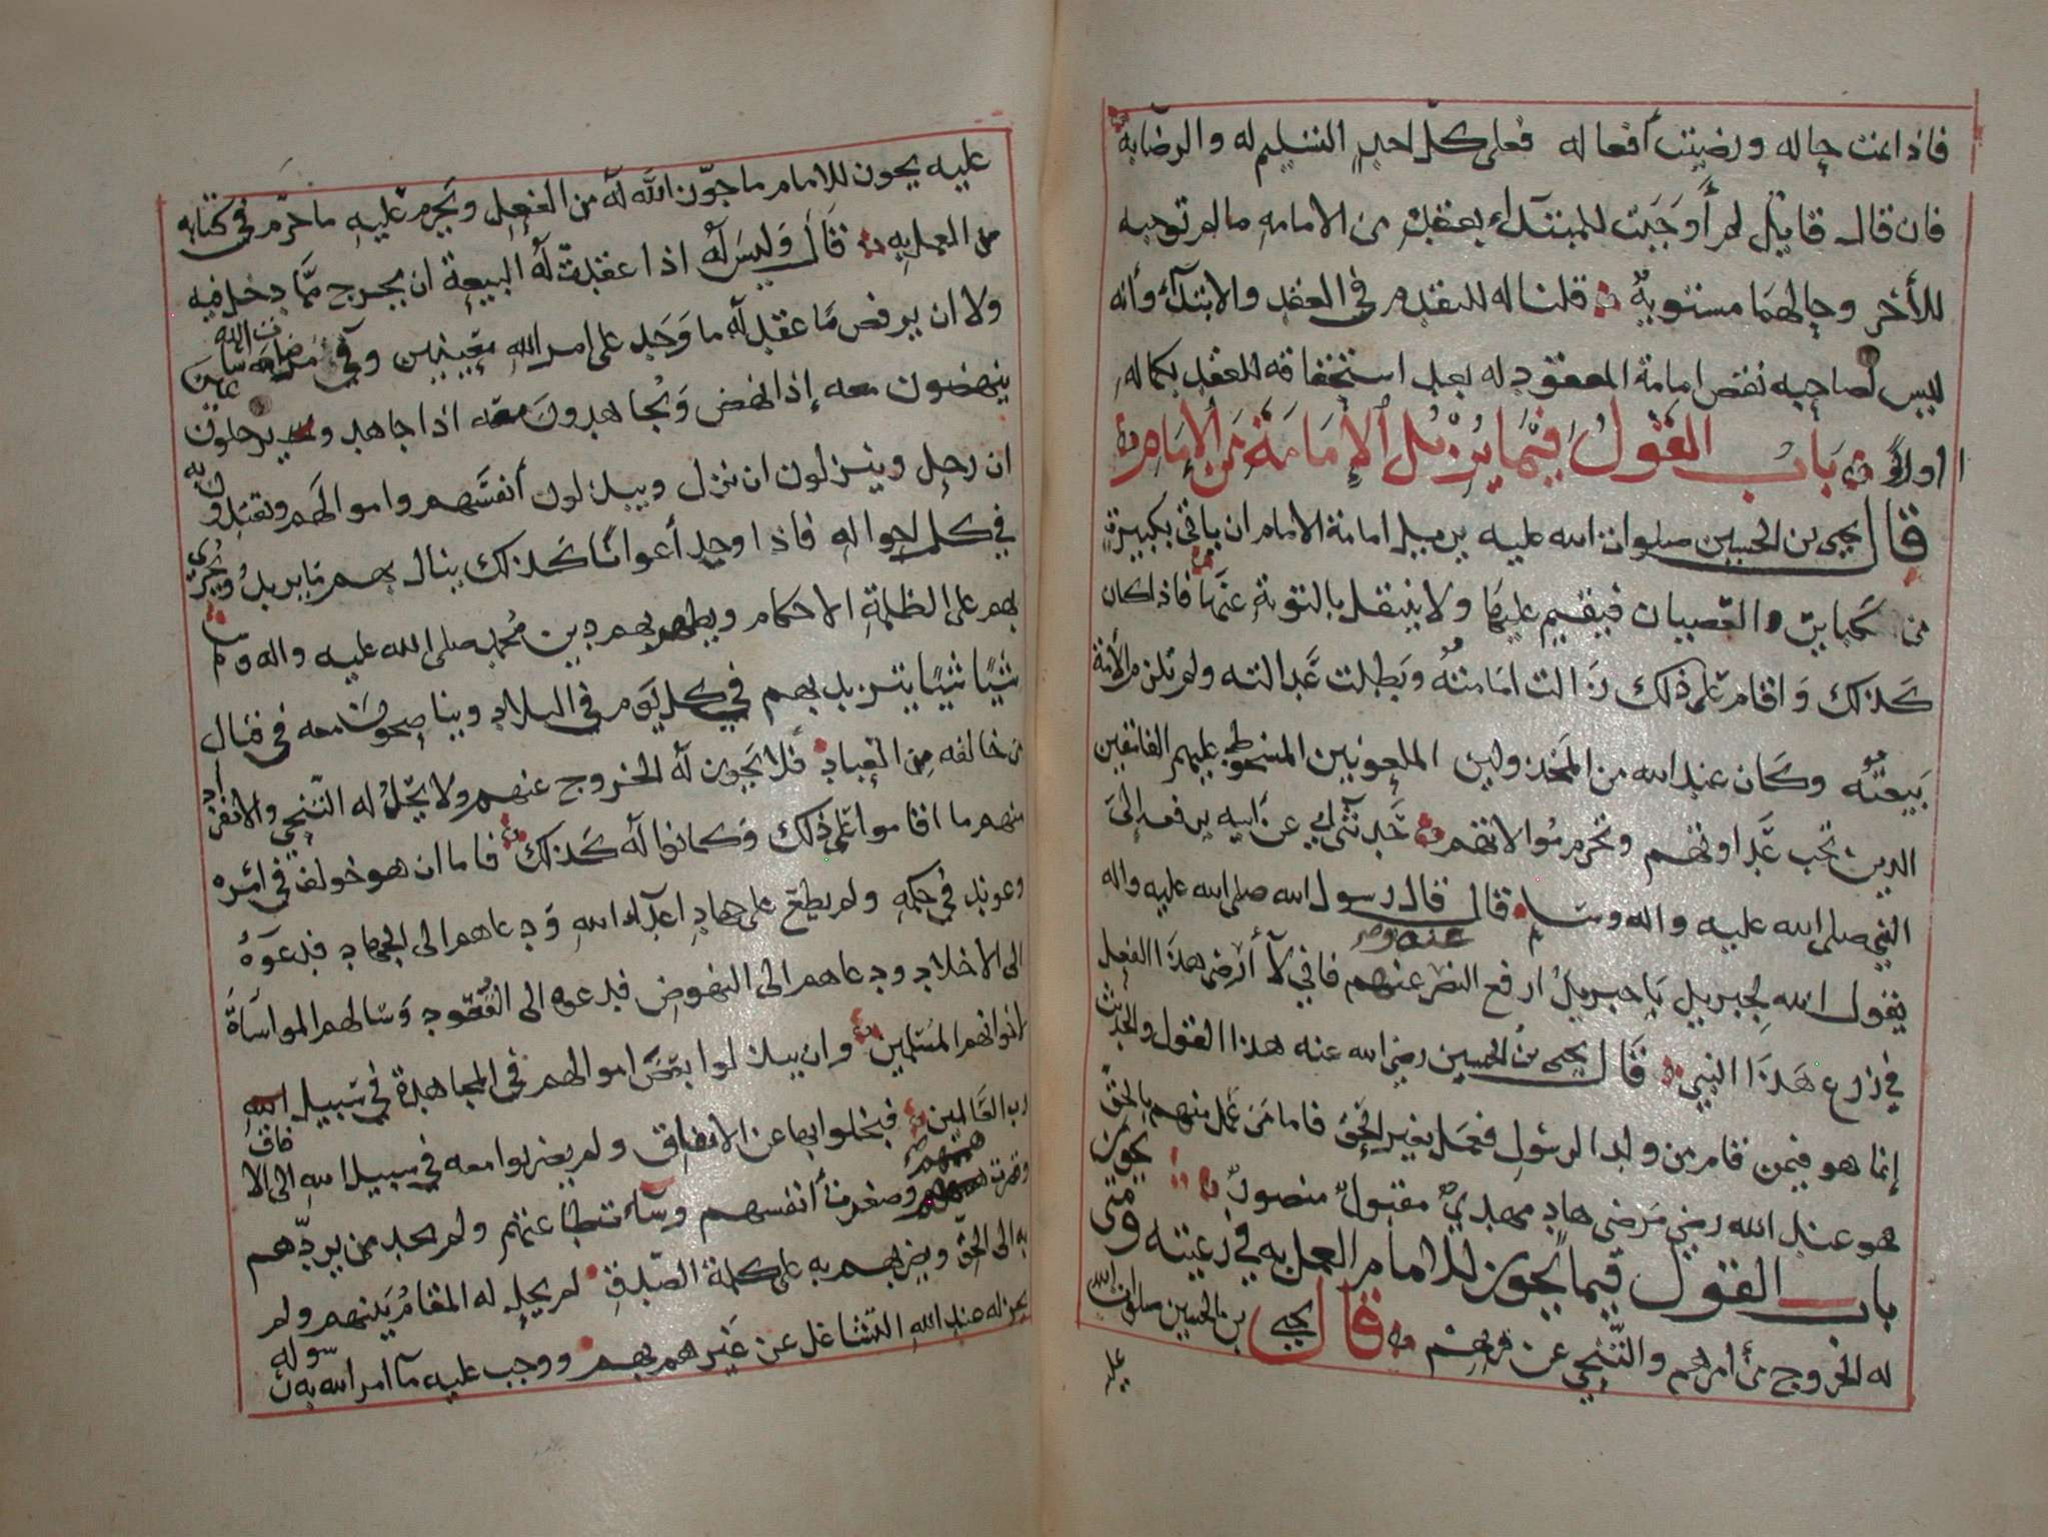 فاذا تمت حاله ورضيت أفعاله فعلى كل احد التسليم له والرضا به
فان قال قائل لم أوجبت للمبتدأ بعقده من الامامه ما لم توجبه
للأخر وحالهما مستويه قلنا له للتقدم في العقد والابتدآء وأنه
ليس لصاحبه نقض امامة المعقود له بعد استحقاقه للعقد بكماله
اولا باب القول فيما يزيل الإمامة من الإمام
قال يحيى بن الحسين صلوات الله عليه يزيل امامة الامام ان ياتي بكبيرة
من كباير العصيان فيقيم عليها ولا ينتقل بالتوبة عنها فاذا كان
كذلك واقام على ذلك زالت امامته وبطلت عدالته ولم تلزم الأمة
بيعته وكان عند الله من المخذولين الملعونين المسخوط عليهم الفاسقين
الذين تجب عداوتهم وتحرم موالاتهم حدثني أبي عن أبيه يرفعه إلى
النبي صلى الله عليه واله وسلم قال قال رسول الله صلى الله عليه واله
يقول الله لجبريل يا جبريل ارفع النصر عنه وعنهم فاني لآ أرضى هذا الفعل
في زرع هذا النبي قال يحيى بن الحسين رضي الله عنه هذا القول والحديث
إنما هو فيمن قام من ولد الرسول فعمل بغير الحق فاما من عمل منهم بالحق
هو عند الله رضي مرضي هاد مهدي مقبول منصور
باب القول فيما يجوز للامام العمل به في رعيته ومتى يجوز
له الخروج من أمرهم والتنحي عن قربهم قال يحيى بن الحسين صلوات الله
عليه
عليه يجوز للامام ما جوز الله له من الفعل ويحرم عليه ما حرم في كتابه
من العمل به قال وليس له اذا عقدت له البيعة ان يخرج مما دخل فيه
ولا ان يرفض ما عقد له ما وجد على امر الله معينين وفي مرضات الله مسارعين
ينهضون معه إذا نهض ويجاهدون معه اذا جاهد ويرحلون
ان رحل وينزلون ان نزل ويبذلون أنفسهم واموالهم ويقبلون قوله
في كل احواله فاذا وجد أعوانا كذلك ينال بهم ما يريد ويجري
بهم على الظلمة الاحكام ويظهر بهم دين محمد صلى الله عليه واله وسلم
شيئا شيئا يتزيد بهم في كل يوم في البلاد ويناصحون معه في قتال
من خالفه من العباد فلا يجوز له الخروج عنهم ولا يحل له التنحي والانفراد
منهم ما اقاموا على ذلك وكانوا له كذلك فاما ان هو خولف في امره
وعوند في حكمه ولم يطع على جهاد اعدآء الله ودعاهم الى الجهاد فدعوه
الى الاخلاد ودعاهم الى النهوض فدعوه الى القعود وسالهم المواساة
لاخوانهم المسلمين وان يبذلوا بعض اموالهم في المجاهدة في سبيل الله
رب العالمين فبخلوا بها عن الانفاق ولم يعزموا معه في سبيل الله الى الافاق
وقصرت هممهم وصغرت أنفسهم وسآءت طاعتهم ولم يجد من يردهم
به الى الحق ويضربهم به على كلمة الصدق لم يحل له المقام بينهم ولم
يجز له عند الله التشاغل عن غيرهم بهم ووجب عليه مآ امر الله به رسوله